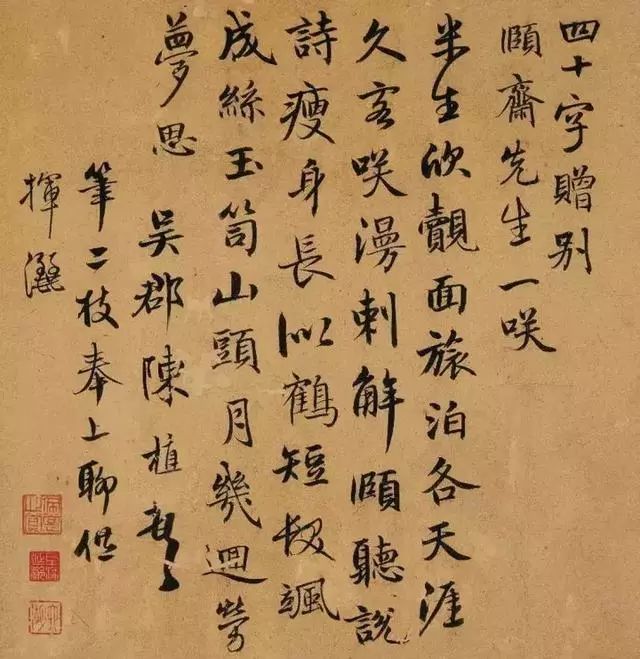 四十字贈别
頤齋先生一咲
米生欣覿面旅泊各天涯
久客咲漫刺解頤聽說
詩瘦身長似鶴短髮颯
成絲玉笥山頭月幾迴勞
夢思 吳郡陳植
筆二枝奉上聊供
揮灑